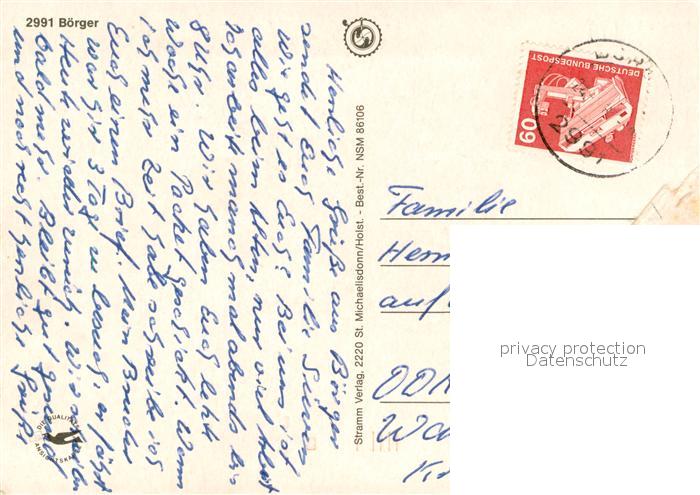 2991 Börger
Herzliche Grüße aus Börger
sendet Euch Familie
Wie geht es Euch? Bei uns ist
alles beim Alten, nur viel Arbeit
manchmal abends bis
8 Uhr. Wir haben Euch letzte
Woche ein Packet geschickt. Wenn
ich mehr Zeit habe schreibe ich
Euch einen Brief. Mein Bruder
war hier 3 Tage zu Besuch er fährt
Heute wieder zurück. Wir schreiben
bald mehr. Bleibt gut gesund
und noch recht herzliche Grüße
DIE QUALITÄTS
ANSICHTSKARTE
Stramm Verlag, 2220 St. Michaelisdonn/Holst. - Best.-Nr. NSM 86106
DEUTSCHE BUNDESPOST
60
2991
Familie
auf
privacy protection
Datenschutz